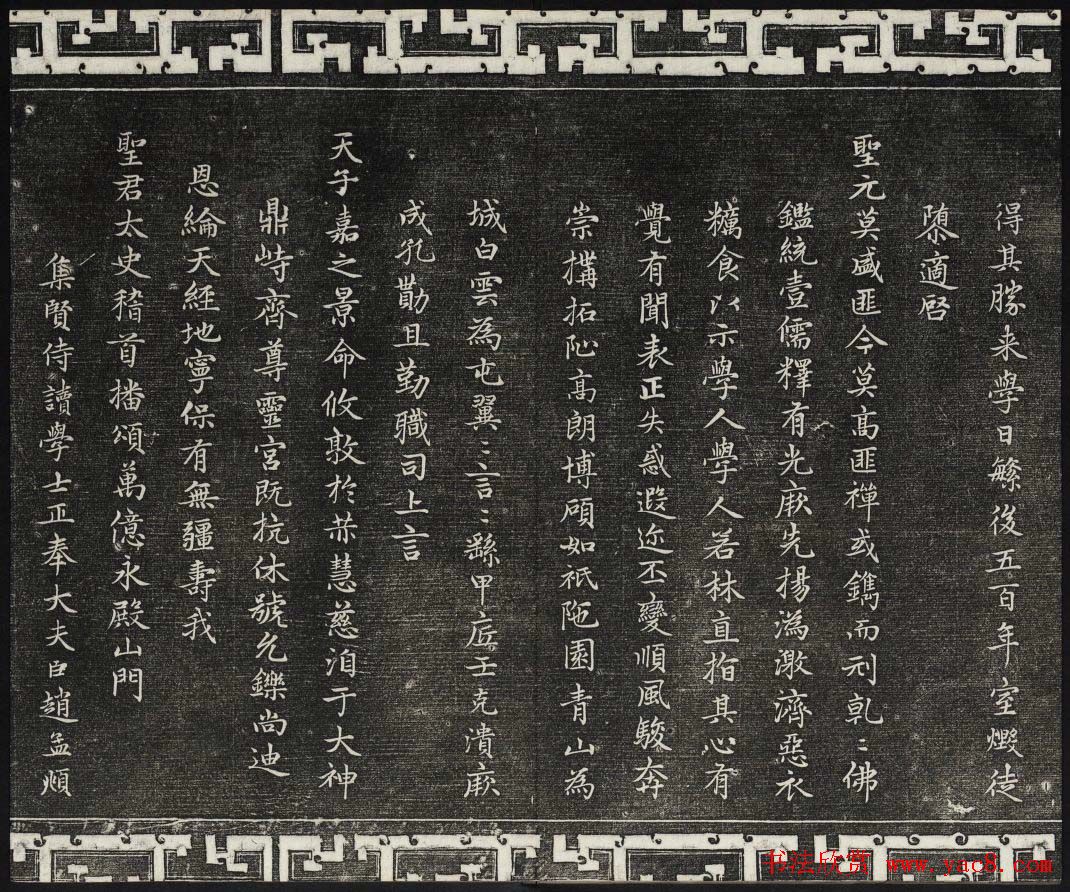 得其勝来學日繁後五百年室燬徒
隳適啓
聖元莫盛匪今莫髙匪禪或鐫而刋乹〻佛
鑑統壹儒釋有光厥先揚溈激濟惡衣
糲食以示學人學人若林直指其心有
覺有聞表正失惑遐迩丕變順風駿奔
崇搆拓阯髙朗博碩如祇陁園青山為
城白雲為屯翼〻言〻繇甲庢壬克潰厥
成孔勩且勤職司上言
天子嘉之景命攸敦於昔慧慈洎于大神
鼎峙齊尊靈宮既抗休號允鑠尚迪
恩綸天經地寧保有無疆壽我
聖君太史稽首播頌萬億永殿山門
集賢侍讀學士正奉大夫臣趙孟頫
书法欣赏 www.yac8.com